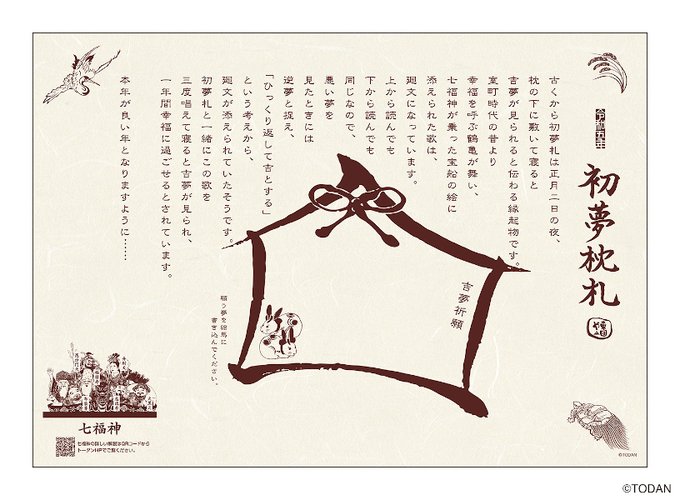 令和五年
初夢枕札
古くから初夢札は正月二日の夜、
枕の下に敷いて寝ると
吉夢が見られると伝わる縁起物です。
室町時代の昔より
幸福を呼ぶ鶴亀が舞い、
七福神が乗った宝船の絵に
添えられた歌は、
廻文になっています。
上から読んでも
下から読んでも
同じなので、
悪い夢を
見たときには
逆夢と捉え、
「ひっくり返して吉とする」
という考えから、
廻文が添えられていたそうです。
初夢札と一緒にこの歌を
三度唱えて寝ると吉夢が見られ、
一年間幸福に過ごせるとされています。
本年が良い年となりますように……
吉夢祈願
願う夢を絵馬に
書き込んでください。
七福神
七福神の詳しい解説はQRコードから
トーダンHPでご覧ください。
©TODAN
©TODAN